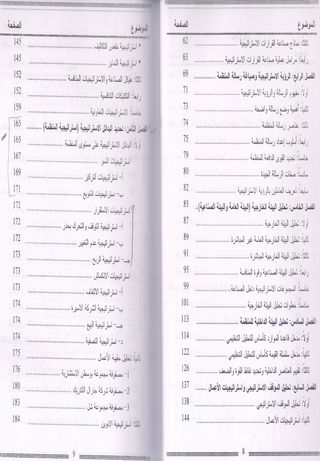 الموضوع الصفحة
ثالثا: نماذج صناعة القرارات الاستراتيجية 62
رابعا: مراحل عملية صناعة القرارات الاستراتيجية 63
الفصل الرابع: الرؤية الاستراتيجية وصياغة رسالة المنظمة 69
أولا: مفهوم الرسالة والرؤية الاستراتيجية 71
ثانيا: أهمية وضع رسالة واضحة 73
ثالثا: عناصر رسالة المنظمة 74
رابعا: أسلوب إعداد رسالة المنظمة 75
خامسا: تحديد القوى الدافعة للمنظمة 76
سادسا: صفات الرسالة الجيدة 81
سابعا: تعريف العاملين بالرؤية الاستراتيجية 82
الفصل الخامس: تحليل البيئة الخارجية (البيئة العامة والبيئة الصناعية) 85
أولا: تحليل البيئة الخارجية 87
ثانيا: تحليل البيئة الخارجية العامة غير المباشرة 89
ثالثا: تحليل البيئة الخارجية المباشرة 91
رابعا: تحليل البيئة الصناعية وقوة المنافسة 95
خامسا: المجموعات الاستراتيجية داخل الصناعة
خامسا: خطوات تحليل البيئة الخارجية 101
الفصل السادس: تحليل البيئة الداخلية للمنظمة 113
أولا: مدخل قاعدة الموارد كأساس للتحليل التنظيمي
ثانيا: مدخل سلسلة القيمة كأساس للتحليل التنظيمي 122
ثالثا: تقييم العناصر الداخلية وتحديد نقاط القوة والضعف 126
الفصل السابع: تحليل الموقف الاستراتيجي واستراتيجيات الأعمال 137
أولا: تحليل الموقف الاستراتيجي 138
ثانيا: استراتيجيات الأعمال 144
8
الموضوع الصفحة
* استراتيجية خفض التكاليف 145
* استراتيجية التمايز 145
ثالثا: هيكل الصناعة والاستراتيجيات التنافسية 152
رابعا: التكتيكات التنافسية
خامسا: الاستراتيجيات التعاونية 159
الفصل الثامن: تحديد البدائل الاستراتيجية (استراتيجية المنظمة) 165
أولا: البدائل الاستراتيجية على مستوى المنظمة
استراتيجيات النمو 167
أ- استراتيجيات التركيز
ب- استراتيجيات التنويع 171
استراتيجيات الاستقرار 172
أ- استراتيجية التوقف والتحرك بحذر 172
ب- استراتيجية عدم التغيير 172
جـ- استراتيجية الربح
استراتيجيات الانكماش
أ- استراتيجية الالتفاف
ب- استراتيجية الشركة الأسيرة 174
جـ- استراتيجية البيع 174
د- استراتيجية التصفية 174
ثانيا: تحليل حقيبة الأعمال 175
1- مصفوفة مجموعة بوسطن الاستشارية 176
2- مصفوفة شركة جنرال الكتريك 180
3- مصفوفة مجموعة شل 183
ثالثا: استراتيجية الأبوين 184
9